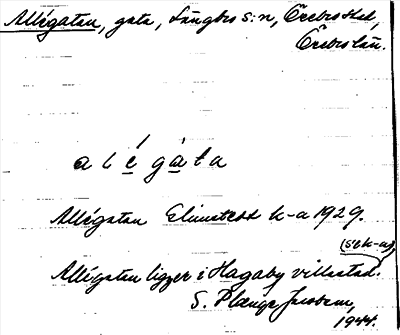 Allégatan, gata, Längbro s:n, Örebro hd,
Örebro län.
a l é g à t a
Allégatan Elmstedt k-a 1929.
(sek-a)
Allégatan ligger i Hagaby villastad.
S. Plænge Jacobson,
1944.